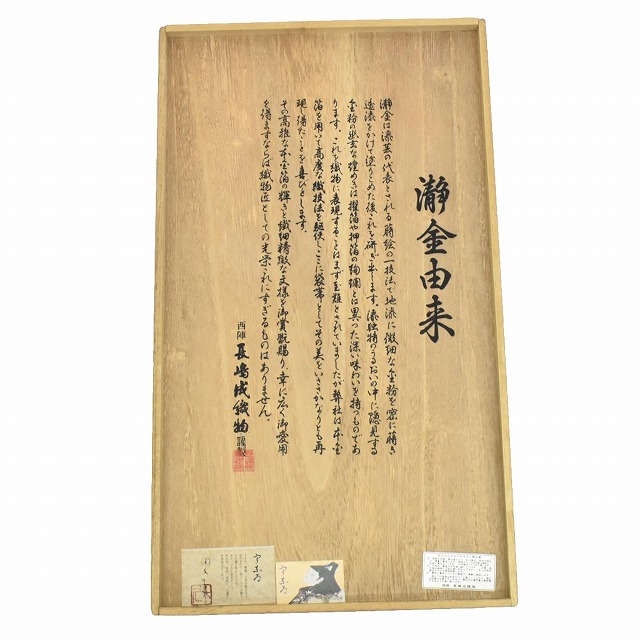 瀞金由来
瀞金は漆芸の代表とされる蒔絵の一技法で地漆に微細な金粉を密に蒔き
透漆をかけて塗りこめた後これを研ぎ出します。漆独特のうるおいの中に隠見する
金粉の幽玄な煌めきは摺箔や押箔の絢爛とは異った深い味わいを持つものであ
ります。これを織物に表現することはまず至難とされていましたが弊社は本金
箔を用いて高度な織技法を駆使しここに袋帯としてその美をいささかなりとも再
現し得たことを喜びとします。
その高雅な本金箔の輝きと繊細精緻な文様を御賞翫賜り、幸に広く御愛用
を得ますならば織物匠としての光栄これにすぎるものはありません。
西陣 長嶋成織物 謹製